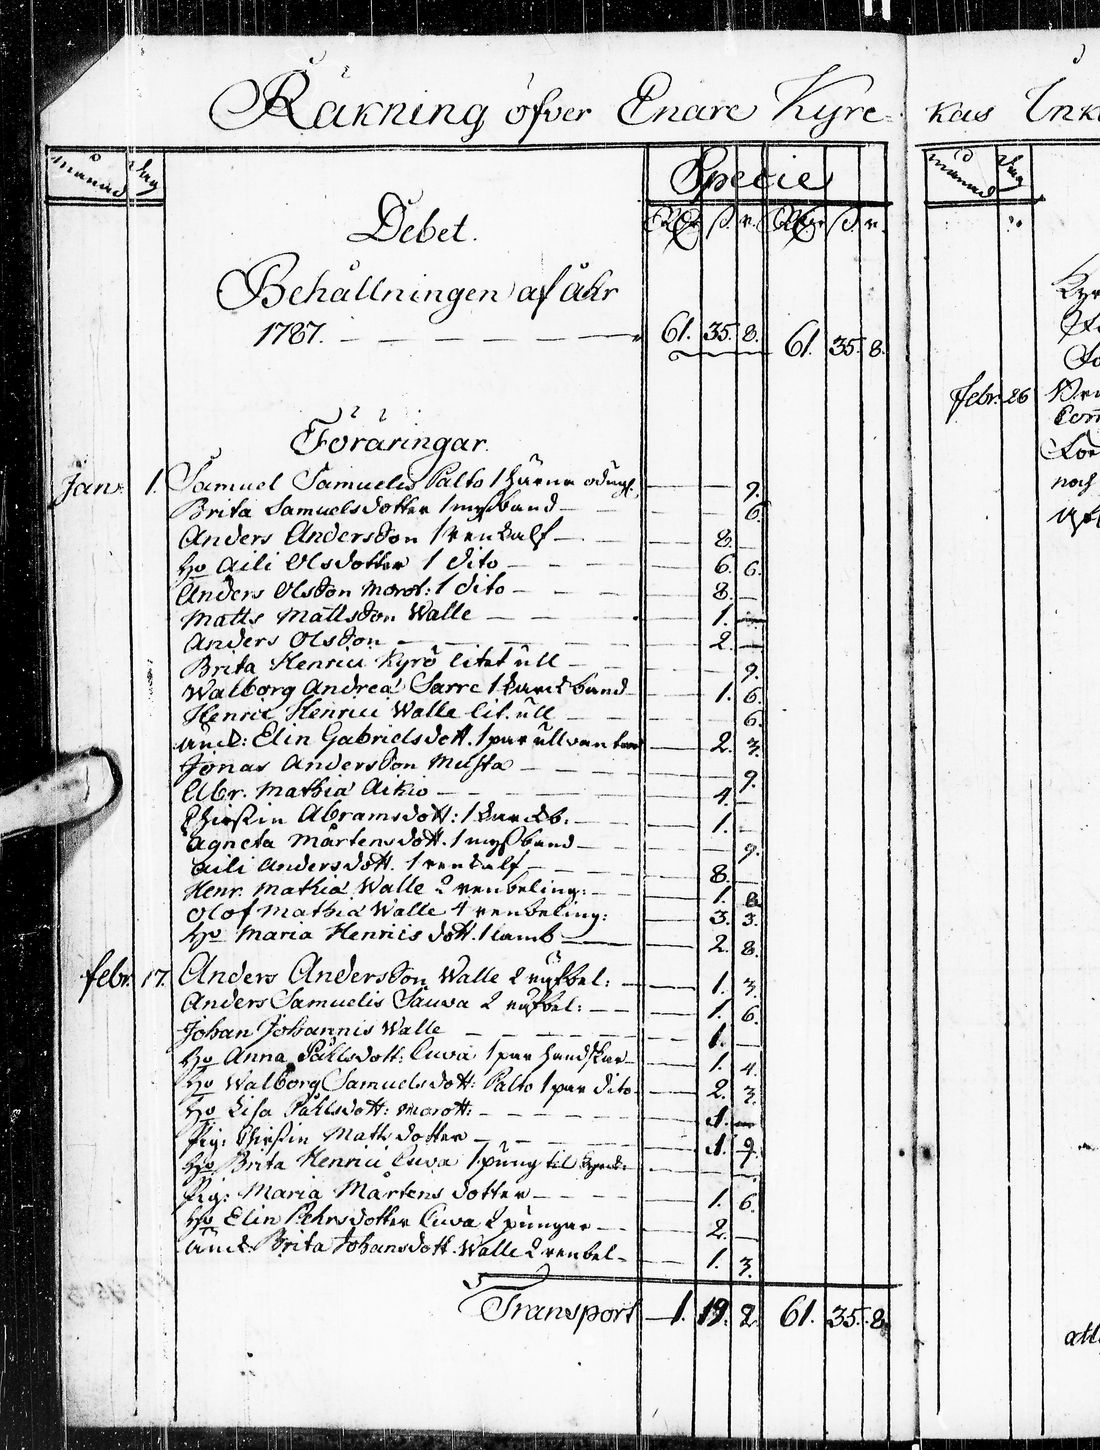 Räkning öfver Enare Kyrc-
månad dag Specie
Rdr ß. r. Rdr ß. r.
Debet.
Behållningen af åhr
1787. 61. 35. 8. 61. 35. 8.
Föräringar.
Jan: 1. Samuel Samuelis Palto 1 9.
Brita Samuelsdotter 1 myßband 6.
Anders Andersson 1 renkalf 8.
Hu Aili Olsdotter 1 dito 6. 6.
Anders Olsson Morot: 1 dito 8.
Matts Mattsson Walle 1.
Anders Olsson 2.
Brita Henrici Kyrö litet ull 9.
Walborg Andreæ Sarre 1 band 1. 6.
Henric Henrici Walle lit. ull 6.
Änck: Elin Gabrielsdott. 1 par ullvantar 2. 3.
Jonas Andersson Musta 9.
Abr. Mathiæ Aikio 4.
Chirstin Abramsdott: 1 1.
Agneta Mårtensdott. 1 myßband 9.
Aili Andersdott. 1 renkalf 8.
Henr. Mathiæ Walle 2 renbeling: 1. 8.
Olof Mathiæ Walle 4 renbeling: 3. 3.
Hu Maria Henricsdott. 1 lamb 2. 8.
febr. 17. Anders Andersson Walle 2 1. 3.
Anders Samuelis Sauva 2 1. 6.
Johan Johannis Walle 1.
Hu Anna Påhlsdott: Cuva 1 par handskar 1. 4.
Hu Walborg Samuelsdott: Palto 1 par dito 2. 3.
Hu Lisa Påhlsdott: Morott: 1.
Pig: Chirstin Mathsdotter 1. 9.
Hu Brita Henrici Cuva 1 pung til
Pig: Maria Mårtensdotter 1. 6.
Hu Elin Pehrsdotter Cuva 2 pungar 2.
Änck. Brita Johansdott. Walle 2 renbel 1. 3.
Transport 1. 19. 2. 61. 35. 8.
kas Ink
månad dag
febr. 26
noch